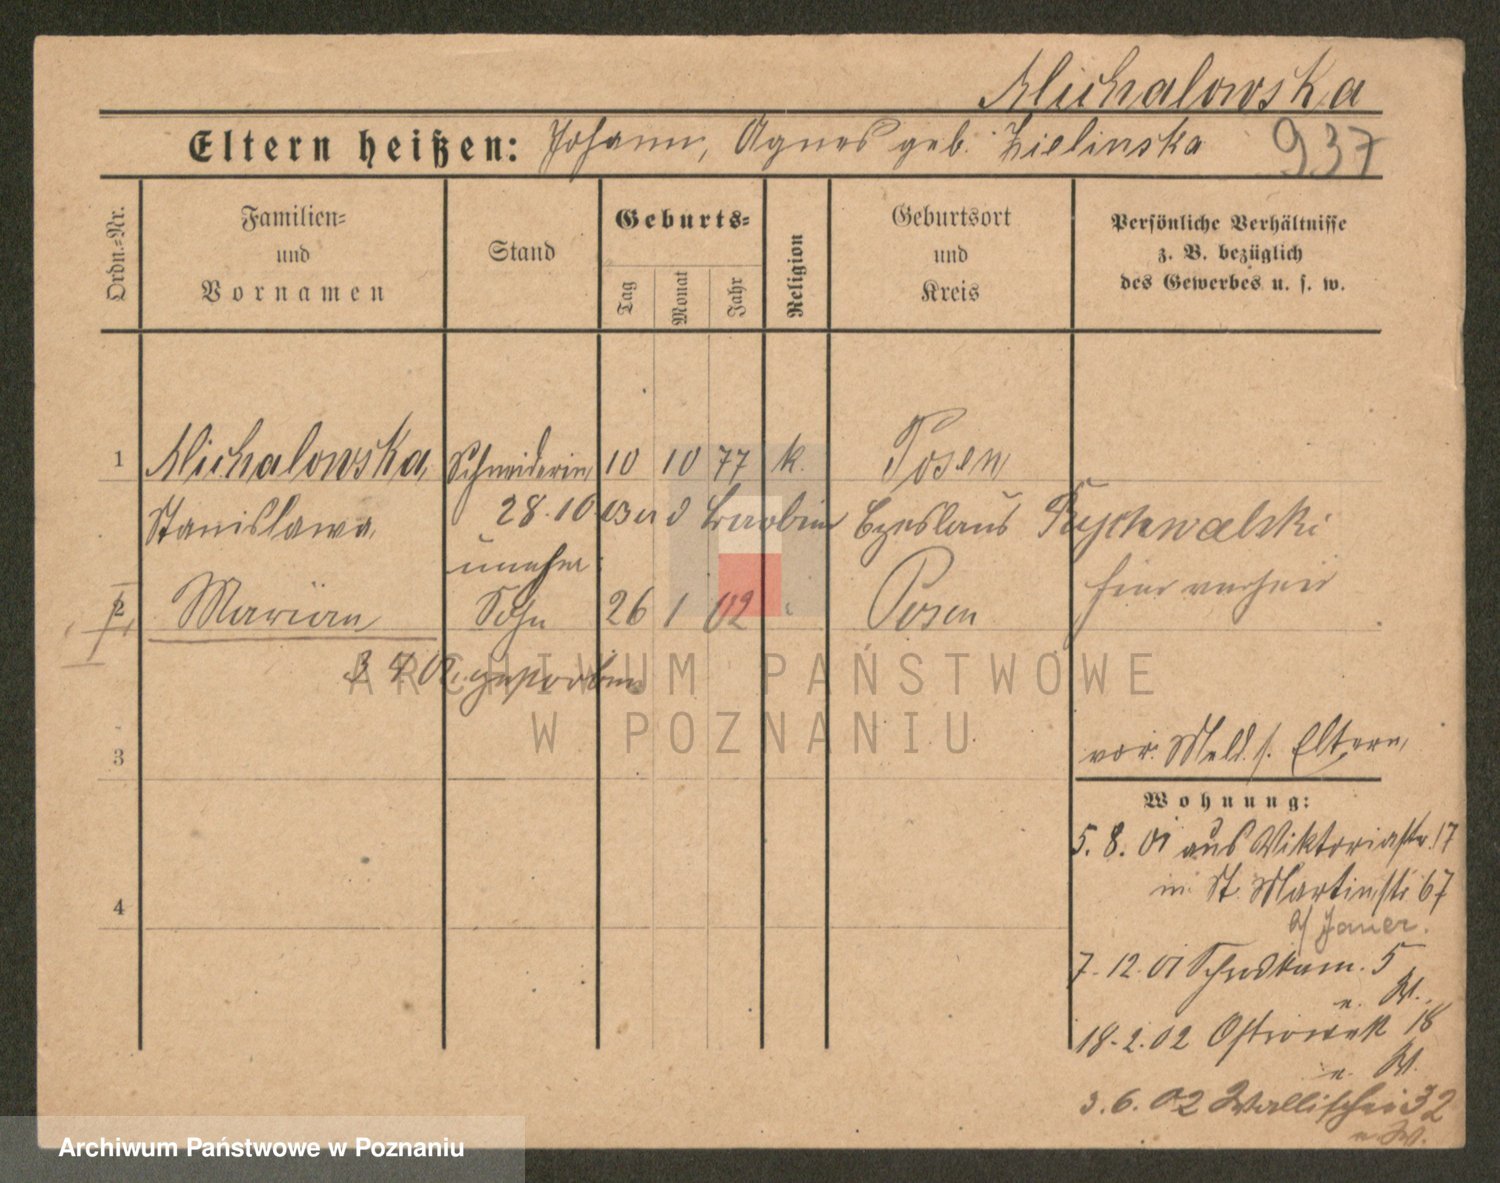 Michalowska
Eltern heißen: Johann, Agnes geb. Zielinska 937
Ordn.=Nr.
Familien=
und
Vornamen
Stand
Geburts=
Tag
Monat
Jahr
Religion
Geburtsort
und
Kreis
Persönliche Verhältnisse
z. B. bezüglich
des Gewerbes u. s. w.
1 Michalowska, Schneiderin 10 10 77 k. Posen
Stanislawa, 28.10 03 Czeslaus Rychwalski
unehe
hier verheir
2 Marian Sohn 26 1 02 Posen
3 4 02 gestorben
ARCHIWUM PAŃSTWOWE
W POZNANIU
3
vor. Meld. s. Eltern,
Wohnung:
5. 8. 01 aus Viktoriastr. 17
in St. Martinstr 67
b/ Jauer.
4
7. 12. 01 5
n. W.
18. 2. 02 Ostrowek 18
n. W.
3. 6. 02 Wallischei 32
n. W.
Archiwum Państwowe w Poznaniu